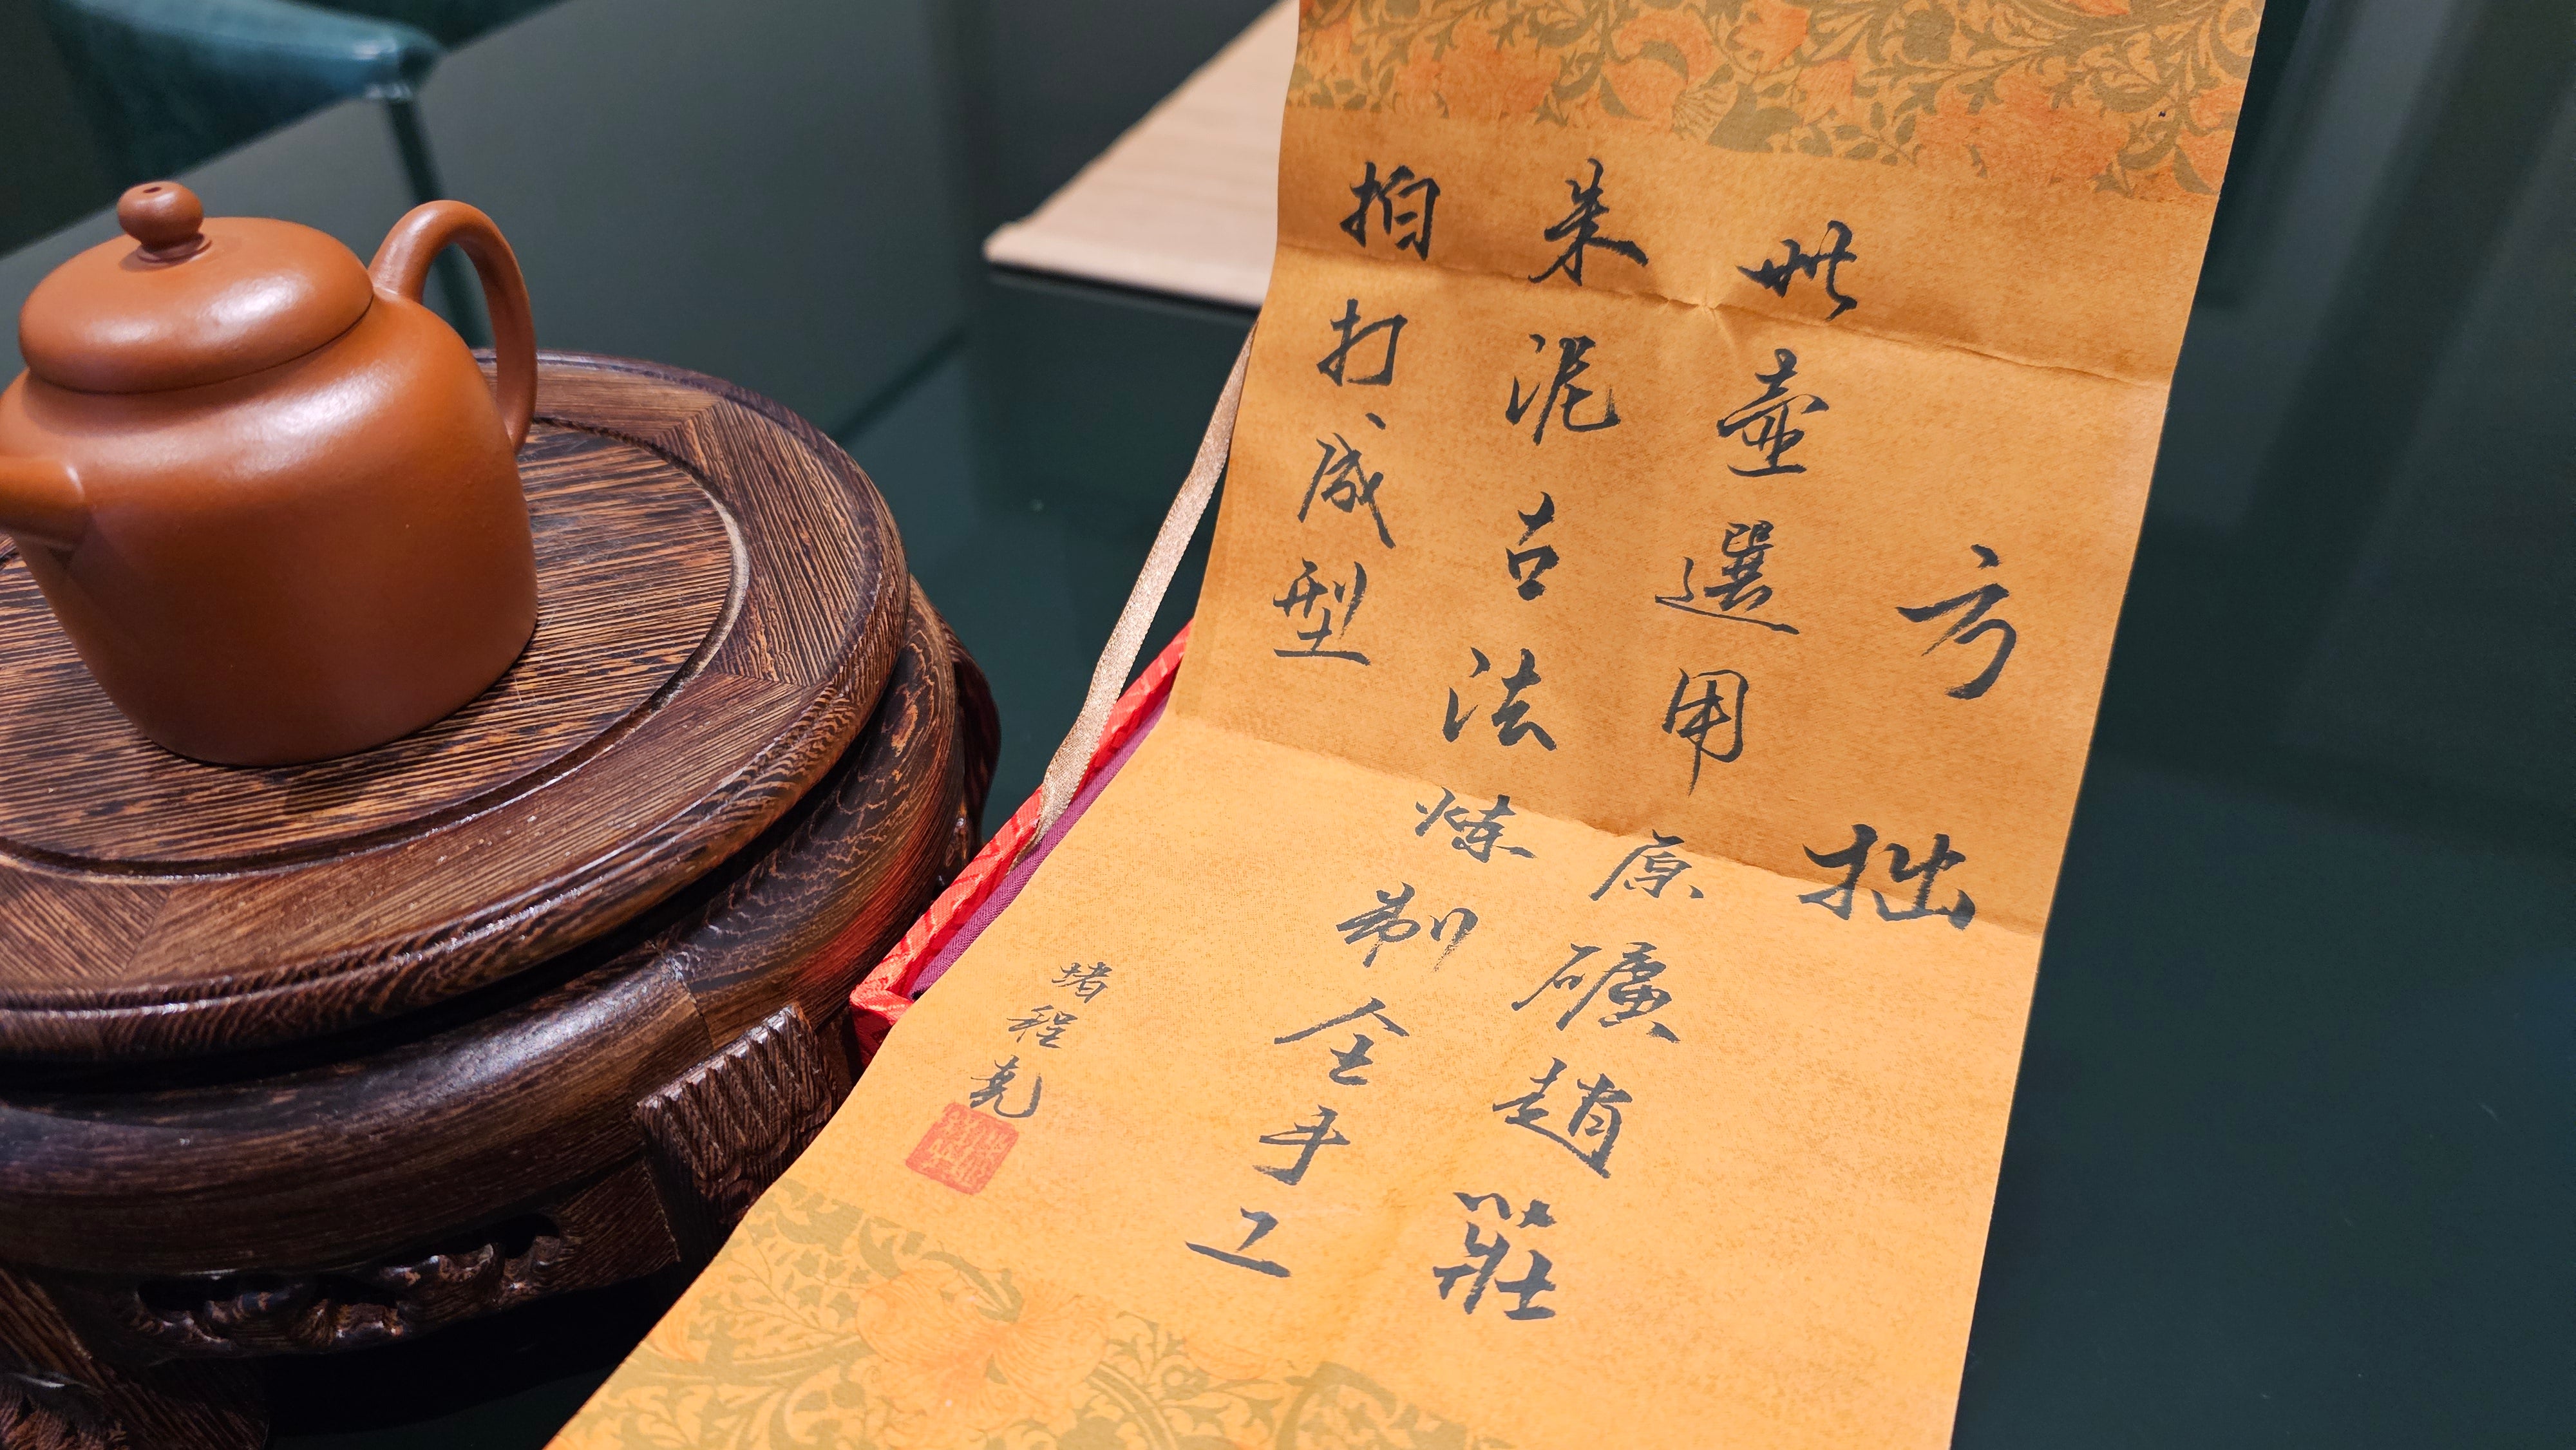 方拙
此壺選用原礦趙莊
朱泥古法炼制全手工
拍打成型
堵程尧